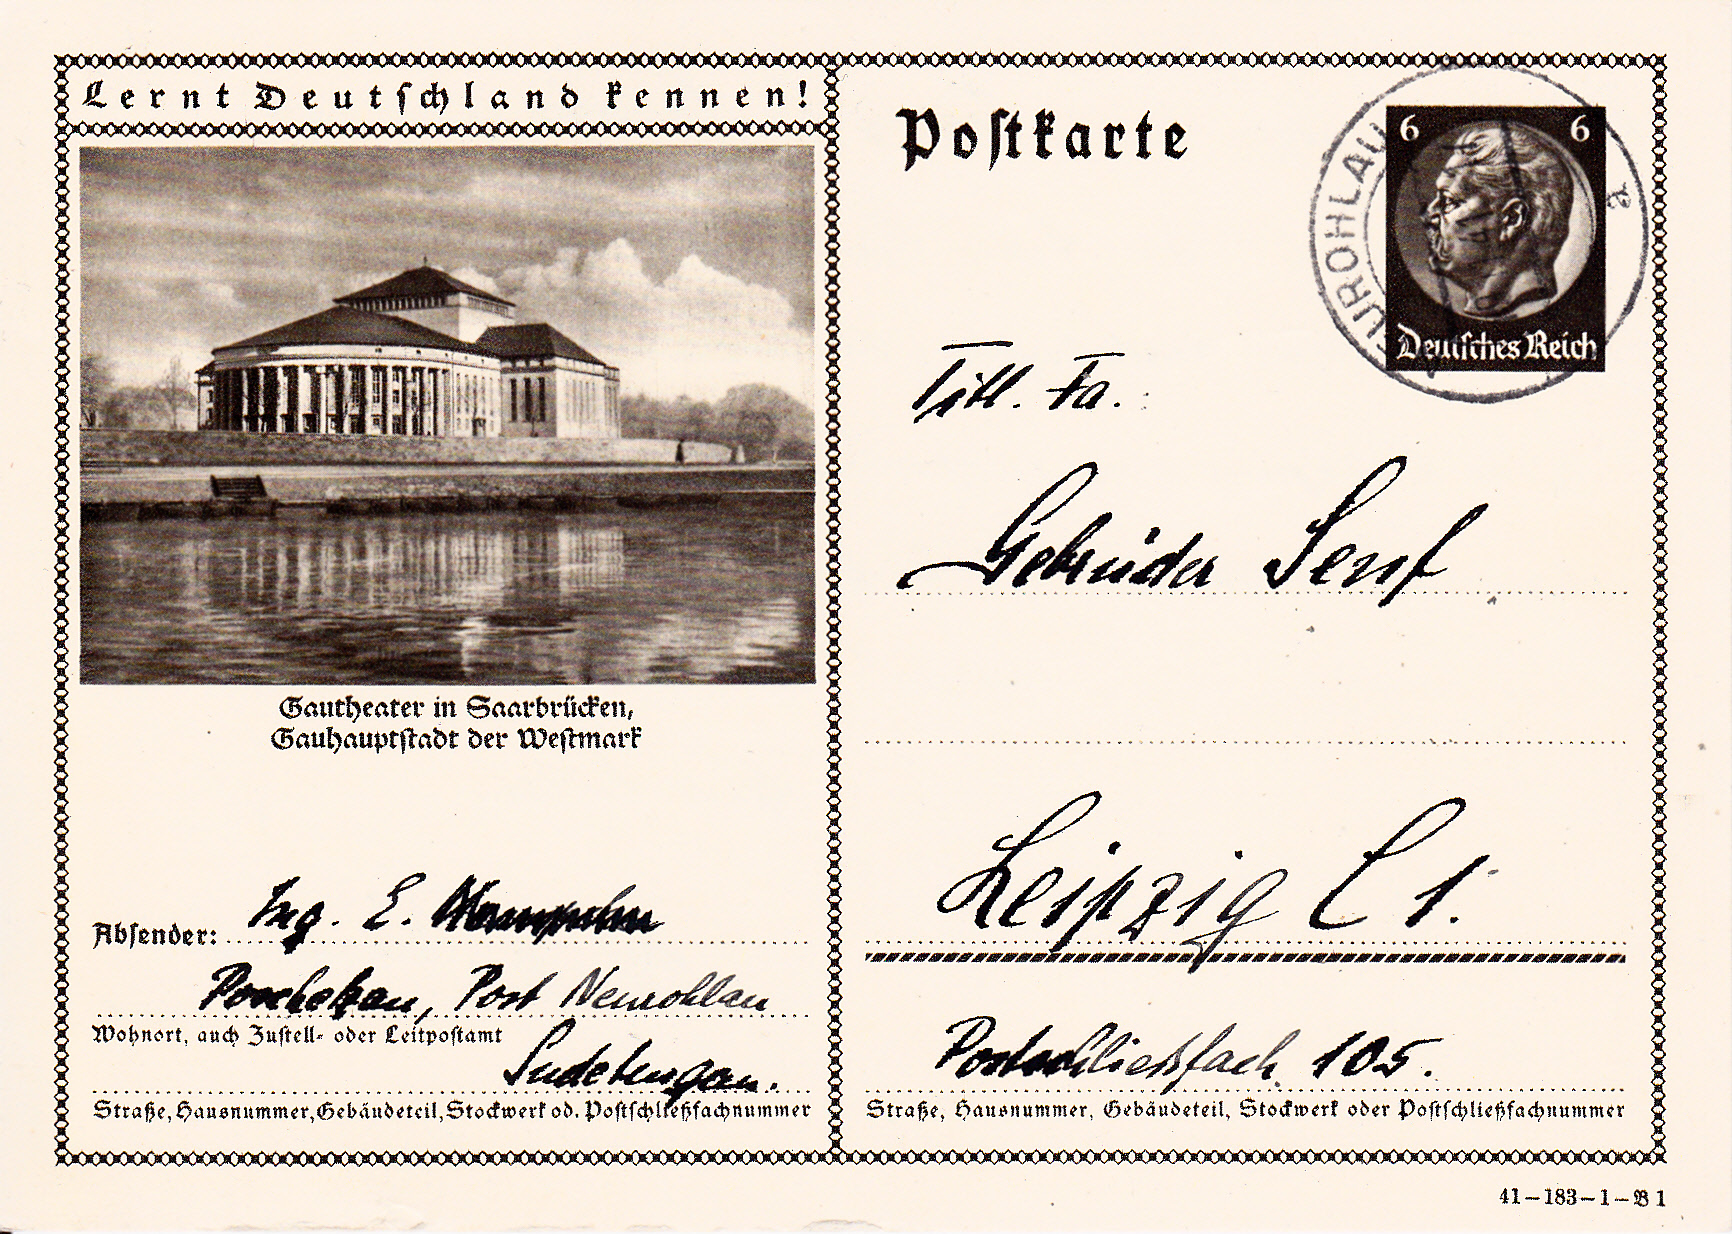 Lernt Deutschland kennen!
Gautheater in Saarbrücken,
Gauhauptstadt der Westmark
Absender: Ing. E.
Poschetzau, Post Neurohlau
Wohnort, auch Zustell- oder Leitpostamt
Sudetengau.
Straße, Hausnummer, Gebäudeteil, Stockwerk od. Postschließfachnummer
Postkarte
6 6
Deutsches Reich
EUROHLAU
a
Titl. Fa.:
Gebrüder Senf
Leipzig C 1.
Postschließfach 105.
Straße, Hausnummer, Gebäudeteil, Stockwerk oder Postschließfachnummer
41-183-1-B 1